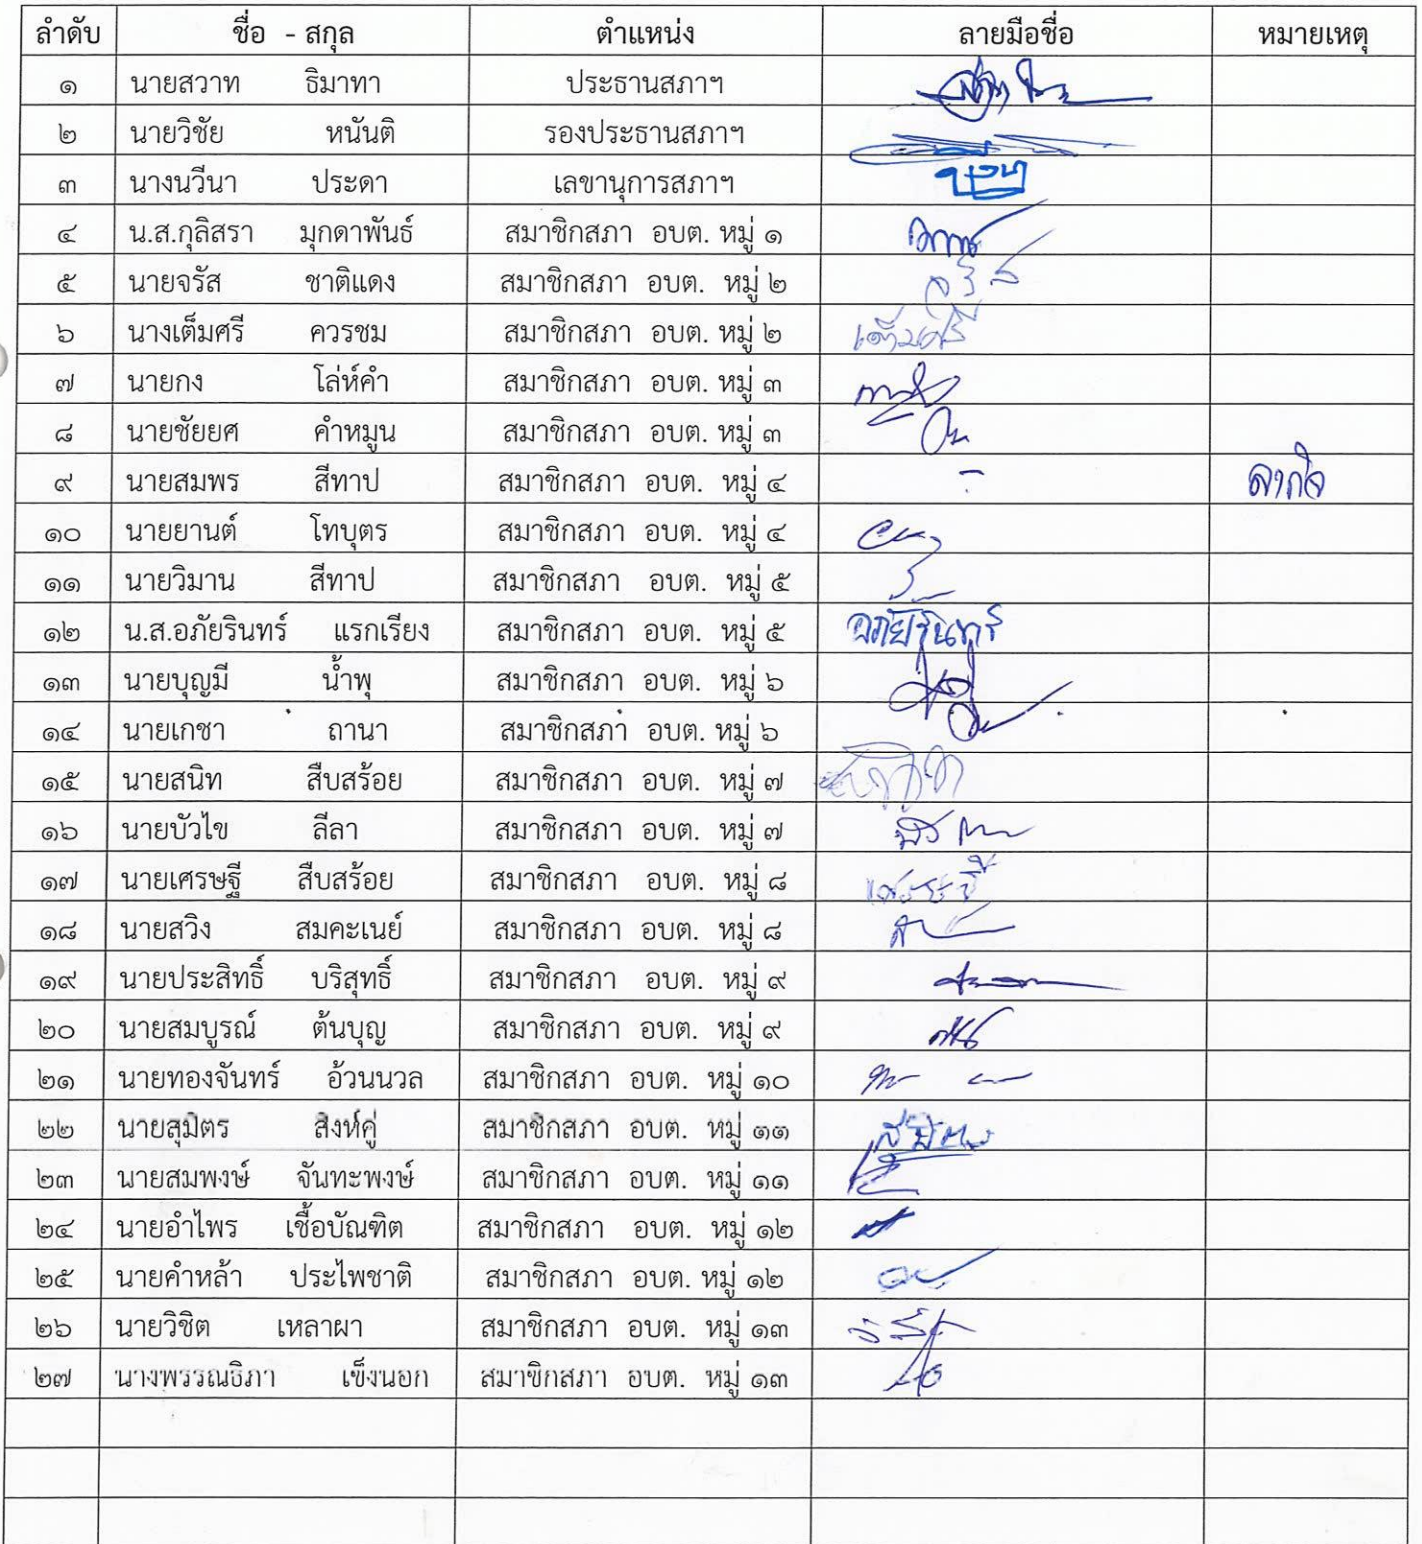 ลำดับ ชื่อ - สกุล ตำแหน่ง ลายมือชื่อ หมายเหตุ
๑ นายสวาท ธิมาทา ประธานสภาฯ
๒ นายวิชัย หนันติ รองประธานสภาฯ
๓ นางนวีนา ประดา เลขานุการสภาฯ
๔ น.ส.กุลิสรา มุกดาพันธ์ สมาชิกสภา อบต. หมู่ ๑
๕ นายจรัส ชาติแดง สมาชิกสภา อบต. หมู่ ๒ จรัส
๖ นางเต็มศรี ควรชม สมาชิกสภา อบต. หมู่ ๒ เต็มศรี
๗ นายกง โล่ห์คำ สมาชิกสภา อบต. หมู่ ๓
๘ นายชัยยศ คำหมูน สมาชิกสภา อบต. หมู่ ๓
๙ นายสมพร สีทาป สมาชิกสภา อบต. หมู่ ๔ - ลากิจ
๑๐ นายยานต์ โทบุตร สมาชิกสภา อบต. หมู่ ๔
๑๑ นายวิมาน สีทาป สมาชิกสภา อบต. หมู่ ๕
๑๒ น.ส.อภัยรินทร์ แรกเรียง สมาชิกสภา อบต. หมู่ ๕ อภัยรินทร์
๑๓ นายบุญมี น้ำพุ สมาชิกสภา อบต. หมู่ ๖
๑๔ นายเกชา ถานา สมาชิกสภา อบต. หมู่ ๖
๑๕ นายสนิท สืบสร้อย สมาชิกสภา อบต. หมู่ ๗
๑๖ นายบัวไข ลีลา สมาชิกสภา อบต. หมู่ ๗
๑๗ นายเศรษฐี สืบสร้อย สมาชิกสภา อบต. หมู่ ๘ เศรษฐี
๑๘ นายสวิง สมคะเนย์ สมาชิกสภา อบต. หมู่ ๘
๑๙ นายประสิทธิ์ บริสุทธิ์ สมาชิกสภา อบต. หมู่ ๙
๒๐ นายสมบูรณ์ ต้นบุญ สมาชิกสภา อบต. หมู่ ๙
๒๑ นายทองจันทร์ อ้วนนวล สมาชิกสภา อบต. หมู่ ๑๐
๒๒ นายสุมิตร สิงห์คู่ สมาชิกสภา อบต. หมู่ ๑๑ สุมิตร
๒๓ นายสมพงษ์ จันทะพงษ์ สมาชิกสภา อบต. หมู่ ๑๑
๒๔ นายอำไพร เชื้อบัณฑิต สมาชิกสภา อบต. หมู่ ๑๒
๒๕ นายคำหล้า ประไพชาติ สมาชิกสภา อบต. หมู่ ๑๒
๒๖ นายวิชิต เหลาผา สมาชิกสภา อบต. หมู่ ๑๓
๒๗ นางพรรณธิภา เข็งนอก สมาชิกสภา อบต. หมู่ ๑๓